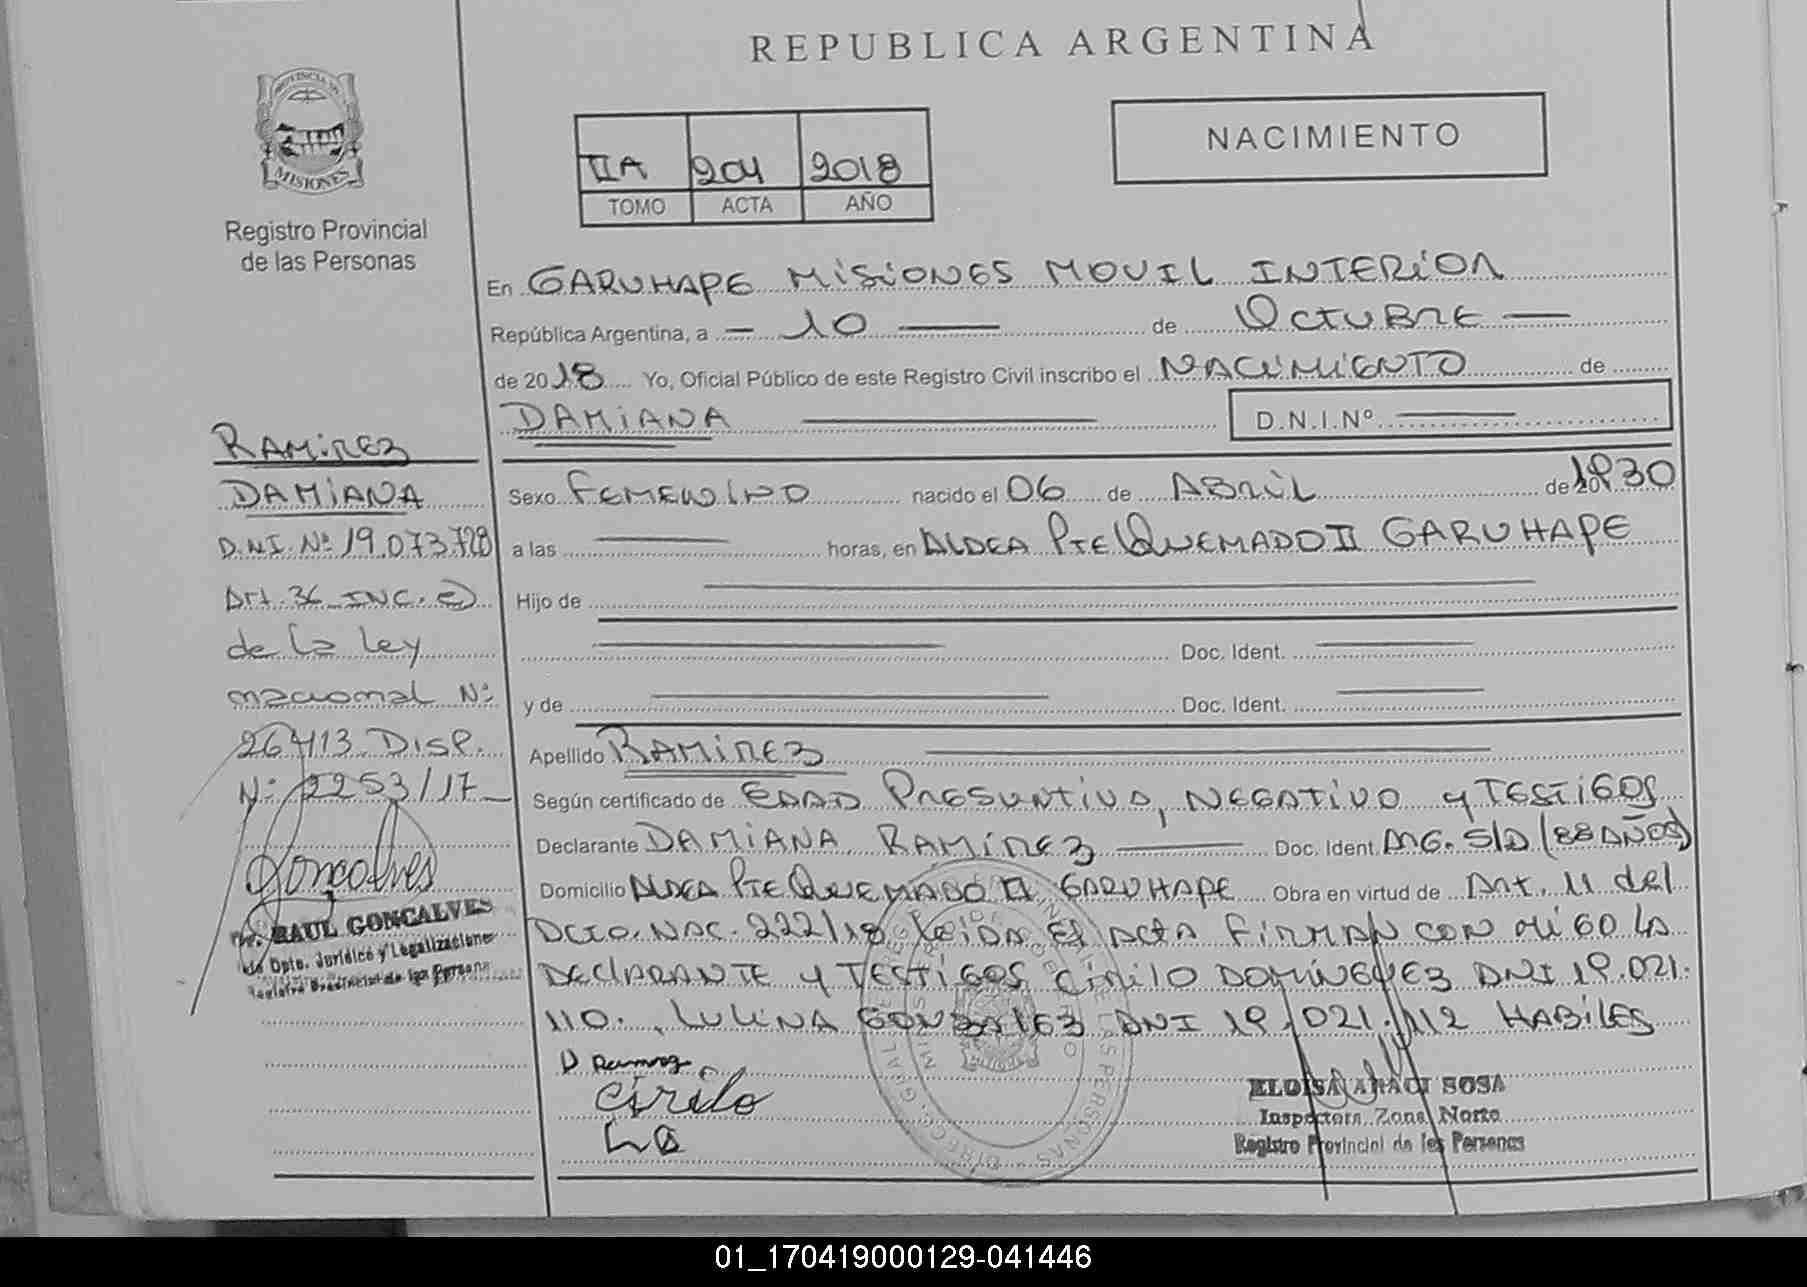 REPUBLICA ARGENTINA
PROVINCIA DE
MISIONES
Registro Provincial
de las Personas
IIA 204 2018
TOMO ACTA AÑO
NACIMIENTO
En GARUHAPE MISIONES MOVIL INTERIOR
República Argentina, a — 10 — de OCTUBRE —
de 2018 Yo, Oficial Público de este Registro Civil inscribo el NACIMIENTO de
DAMIANA — D.N.I. Nº —
Sexo FEMENINO nacido el 06 de ABRIL de 20 1930
a las — horas, en ALDEA PTE QUEMADO II GARUHAPE
Hijo de —
— Doc. Ident. —
y de — Doc. Ident. —
Apellido RAMIREZ —
Según certificado de EDAD PRESUNTIVA, NEGATIVO y TESTIGOS
Declarante DAMIANA RAMÍREZ — Doc. Ident. S/D (88 AÑOS)
Domicilio ALDEA PTE QUEMADO II GARUHAPE Obra en virtud de Art. 11 del
DCTO. NAC. 222/18 LEIDA EL ACTA FIRMAN CON MIGO LA
DECLARANTE y TESTIGOS CIRILO DOMÍNGUEZ DNI 19.021.
110. LULINA GONZALEZ DNI 19.021.112 HABILES
RAMIREZ
DAMIANA
D.N.I. Nº 19.073.728
Art. 36 INC. e)
de la ley
nacional Nº
26413 DISP.
Nº 2253/17
Goncalves
Dr. RAUL GONCALVES
Dpto. Jurídico y Legalizaciones
Registro Provincial de las Personas
D Ramirez
Cirilo
LG
ELOISA ARACI SOSA
Inspectora Zona Norte
Registro Provincial de las Personas
01_170419000129-041446